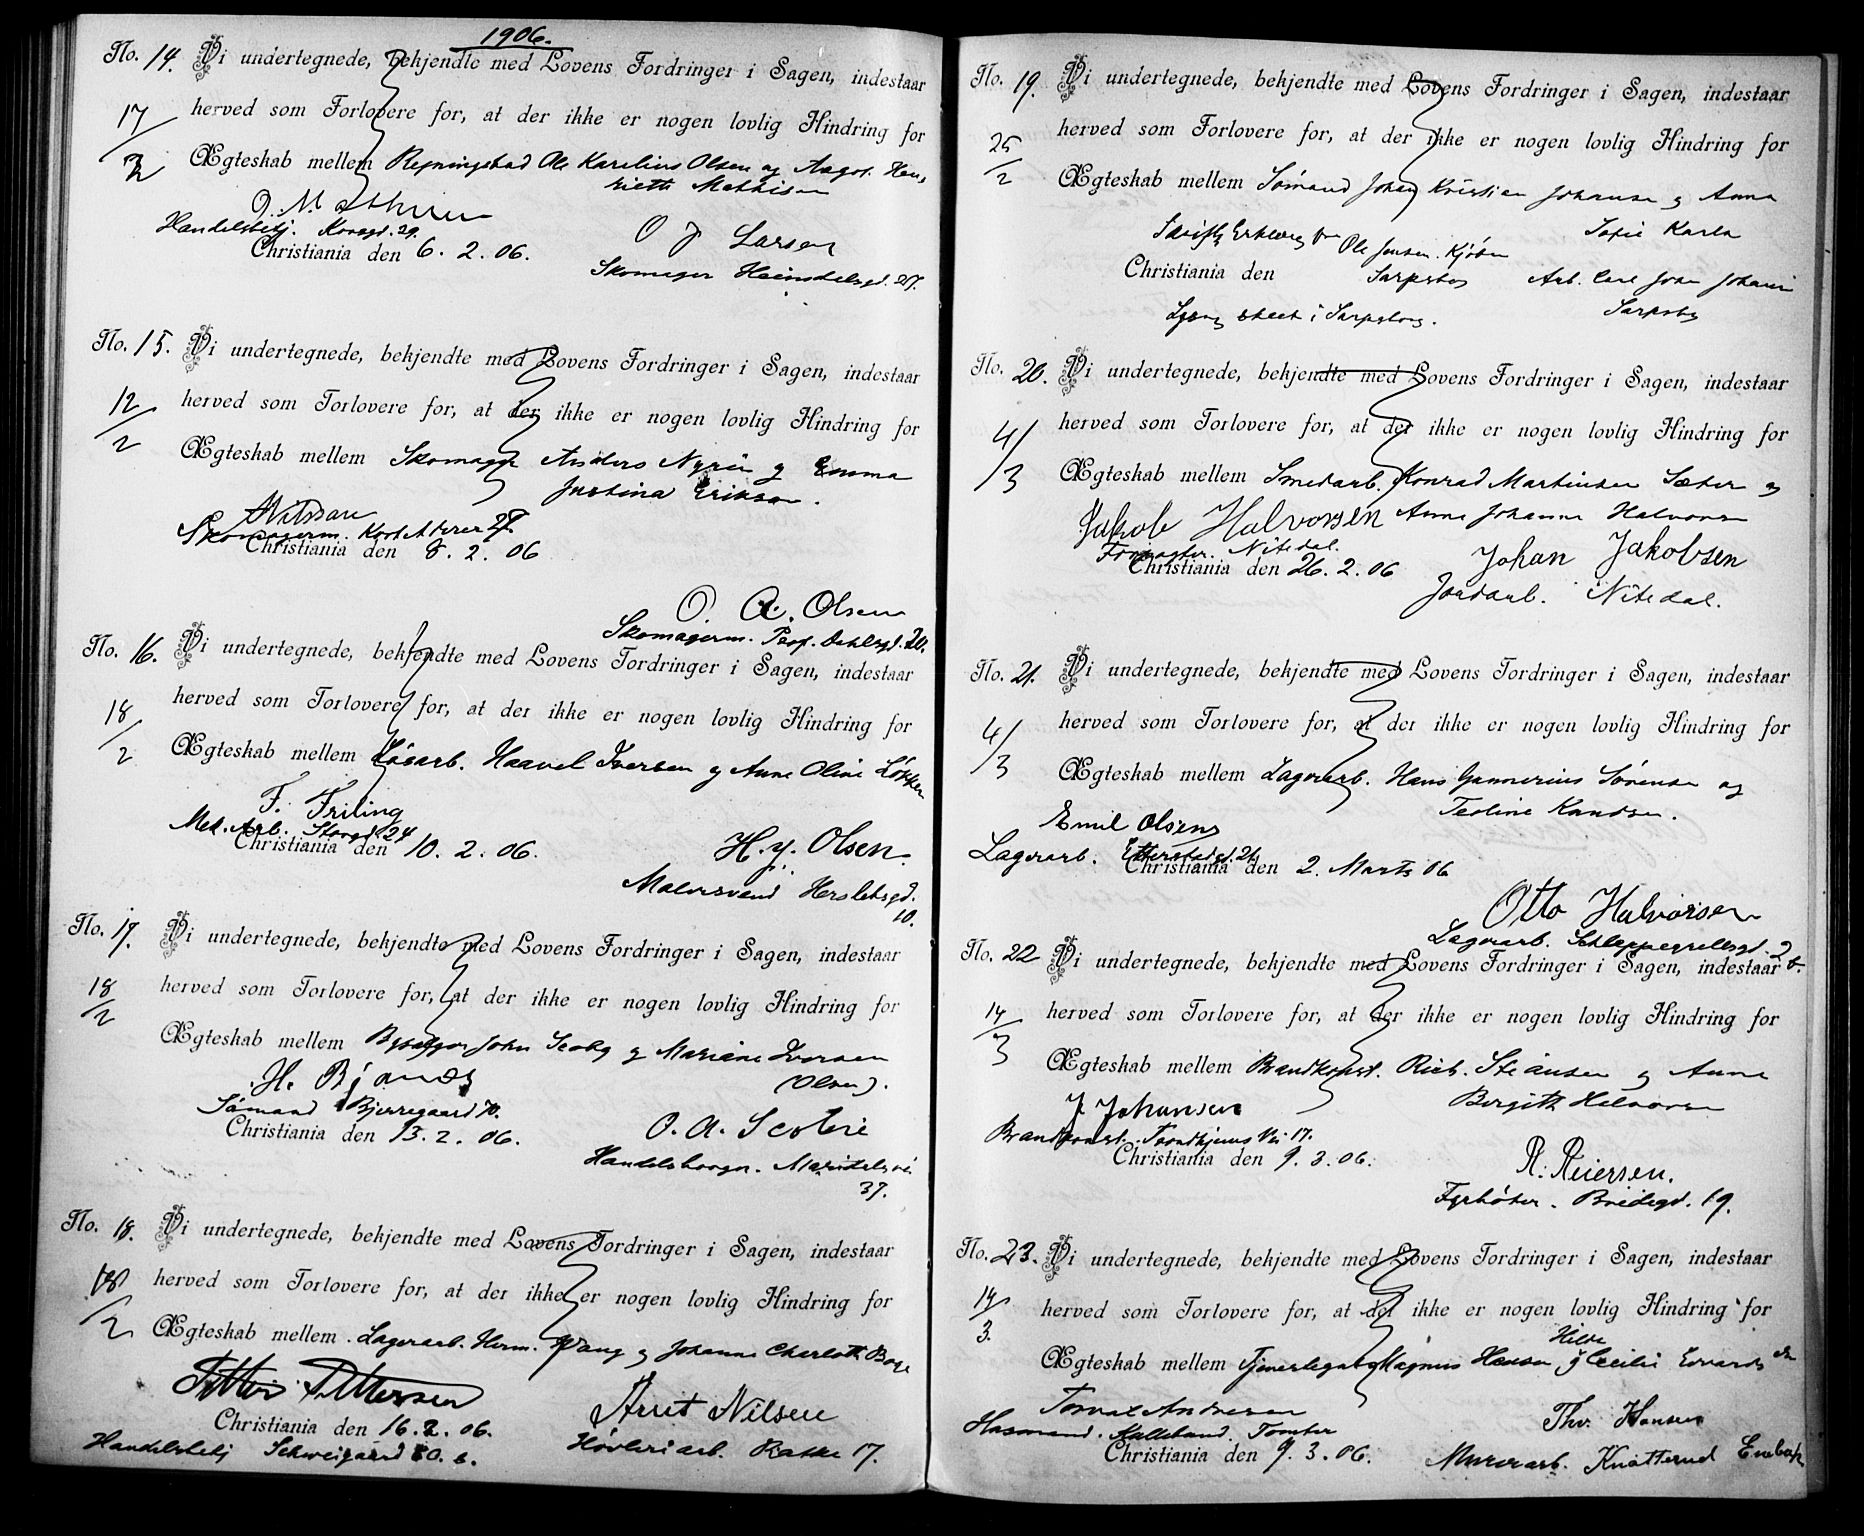 1906.
No. 14. Vi undertegnede, bekjendte med Lovens Fordringer i Sagen, indestaar
17/2 herved som Forlovere for, at der ikke er nogen lovlig Hindring for
Ægteskab mellem Ole Karelius Olsen og Aagot Hen-
riette Mathisen
O. Mathisen
Handelsbetj. Korsgd. 29.
O J Larsen
Christiania den 6. 2. 06.
Skomager Heimdalsgd. 27.
No. 15. Vi undertegnede, bekjendte med Lovens Fordringer i Sagen, indestaar
12/2 herved som Forlovere for, at der ikke er nogen lovlig Hindring for
Ægteskab mellem Skomager Anders Nyrén og Emma
Justina Erikson.
Skomagerm.
Christiania den 8. 2. 06
O. A. Olsen
Skomagerm. Prof. Dahlsgd.
No. 16. Vi undertegnede, bekjendte med Lovens Fordringer i Sagen, indestaar
18/2 herved som Forlovere for, at der ikke er nogen lovlig Hindring for
Ægteskab mellem Løsarb. Haavel Iversen og Anne Oline Løkken
F. Friling
Mek. Arb. Storgd. 24
Christiania den 10. 2. 06.
H. y. Olsen.
Malersvend Herslebsgd.
10.
No. 17. Vi undertegnede, bekjendte med Lovens Fordringer i Sagen, indestaar
18/2 herved som Forlovere for, at der ikke er nogen lovlig Hindring for
Ægteskab mellem John og Mariane Iversen
(Olsen).
H. Bjanes
Sømand Bjerregaard 70.
Christiania den 13. 2. 06.
O. A.
Handelsborger. Maridalsvei
37.
No. 18. Vi undertegnede, bekjendte med Lovens Fordringer i Sagen, indestaar
18/2 herved som Forlovere for, at der ikke er nogen lovlig Hindring for
Ægteskab mellem Lagerarb. Herm. Wang og Johanne Charlotte
Petter Pettersen
Arnt Nilsen
Christiania den 16. 2. 06.
Handelsbetj Schweigaard
Høvleriarb. Bakke 17.
No. 19. Vi undertegnede, bekjendte med Lovens Fordringer i Sagen, indestaar
25/2 herved som Forlovere for, at der ikke er nogen lovlig Hindring for
Ægteskab mellem Sømand Johan Kristian Johansen og Anna
Sofie Karla
Skriftlig Erklæring fra Ole Jensen.
Christiania den Sarpsborg Arb. Carl Johan Johansen
Sarpsborg
Lysing skeet i Sarpsborg.
No. 20. Vi undertegnede, bekjendte med Lovens Fordringer i Sagen, indestaar
4/3 herved som Forlovere for, at der ikke er nogen lovlig Hindring for
Ægteskab mellem Smedarb. Konrad Martinsen Sæter og
Anne Johanne Halvorsen
Jakob Halvorsen
Nitedal.
Christiania den 26. 2. 06
Johan Jakobsen
Jordarb. Nitedal.
No. 21. Vi undertegnede, bekjendte med Lovens Fordringer i Sagen, indestaar
4/3 herved som Forlovere for, at der ikke er nogen lovlig Hindring for
Ægteskab mellem Lagerarb. Hans Gunnerius Sørensen og
Teoline Knudsen.
Emil Olsen
Lagerarb. Etterstadgd.
Christiania den 2. Marts 06
Otto Halvorsen
Lagerarb. Schleppegrellsgd. 2 b.
No. 22 Vi undertegnede, bekjendte med Lovens Fordringer i Sagen, indestaar
14/3 herved som Forlovere for, at der ikke er nogen lovlig Hindring for
Ægteskab mellem Brandkonst. Rich. og Anna
Bergith Halvorsen
J. Johansen
Brandkonst. Trondhjems Vei 17.
Christiania den 9. 3. 06.
R. Reiersen.
Fyrbøter. Bredegd. 19.
No. 23. Vi undertegnede, bekjendte med Lovens Fordringer i Sagen, indestaar
14/3. herved som Forlovere for, at der ikke er nogen lovlig Hindring for
Hilda
Ægteskab mellem Magnus Hansen og Cecilie
Torval Andresen
Husmand. Tomter
Christiania den 9. 3. 06.
Thv. Hansen
Murerarb. Knatterud Enebak